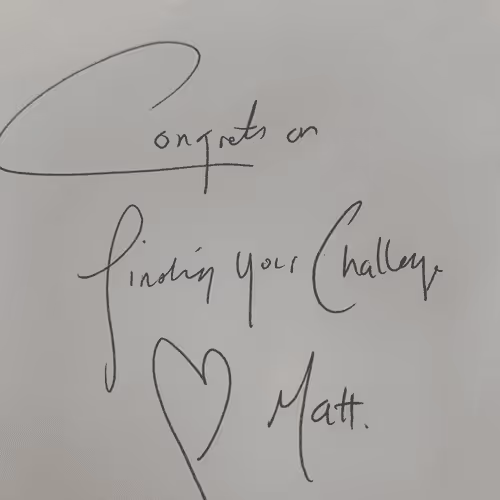 Congrats on
finding your Challenge
♡ Matt.